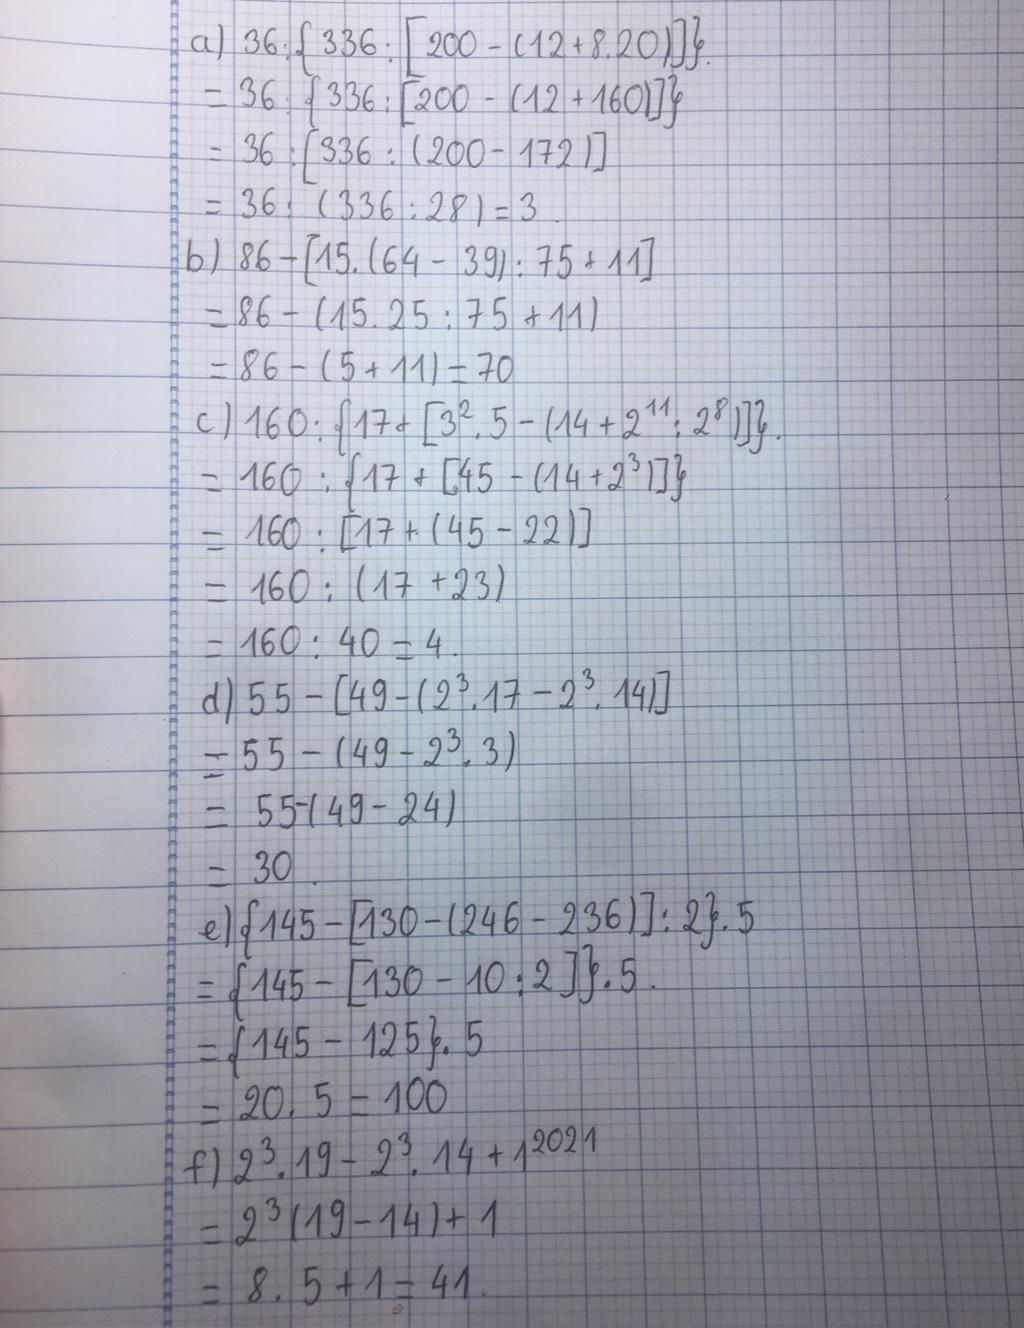 a) 36:{336:[200-(12+8.20)]}.
= 36:{336:[200-(12+160)]}
= 36:[336:(200-172)]
= 36:(336:28)=3.
b) 86-[15.(64-39):75+11]
=86-(15.25:75+11)
=86-(5+11)=70
c) 160:{17+[3².5-(14+2¹¹:2⁸)]}.
= 160:{17+[45-(14+2³)]}
= 160:[17+(45-22)]
= 160:(17+23)
= 160:40=4.
d) 55-[49-(2³.17-2³.14)]
=55-(49-2³.3)
= 55-(49-24)
= 30.
e) {145-[130-(246-236)]:2}.5
= {145-[130-10:2]}.5.
= {145-125}.5
= 20.5=100
f) 2³.19-2³.14+1²⁰²¹
= 2³(19-14)+1
= 8.5+1=41.